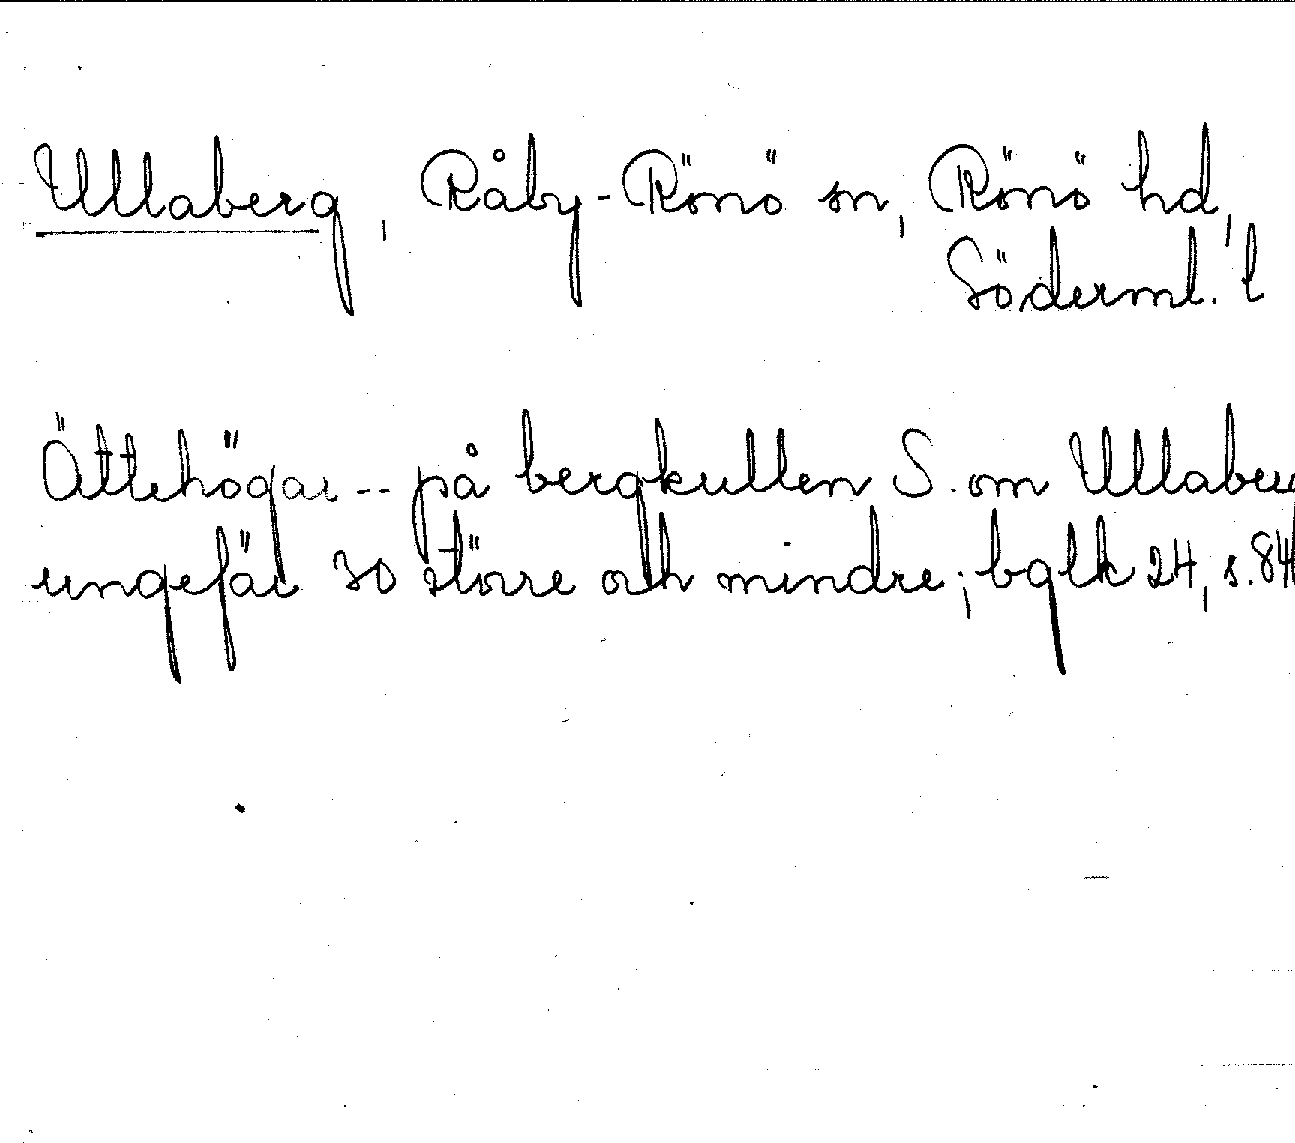 Ullaberg, Råby-Rönö sn, Rönö hd,
Söderml. l
Ättehögar -- på bergkullen S. om Ullaber
ungefär 30 större och mindre; bglk 24, s. 84